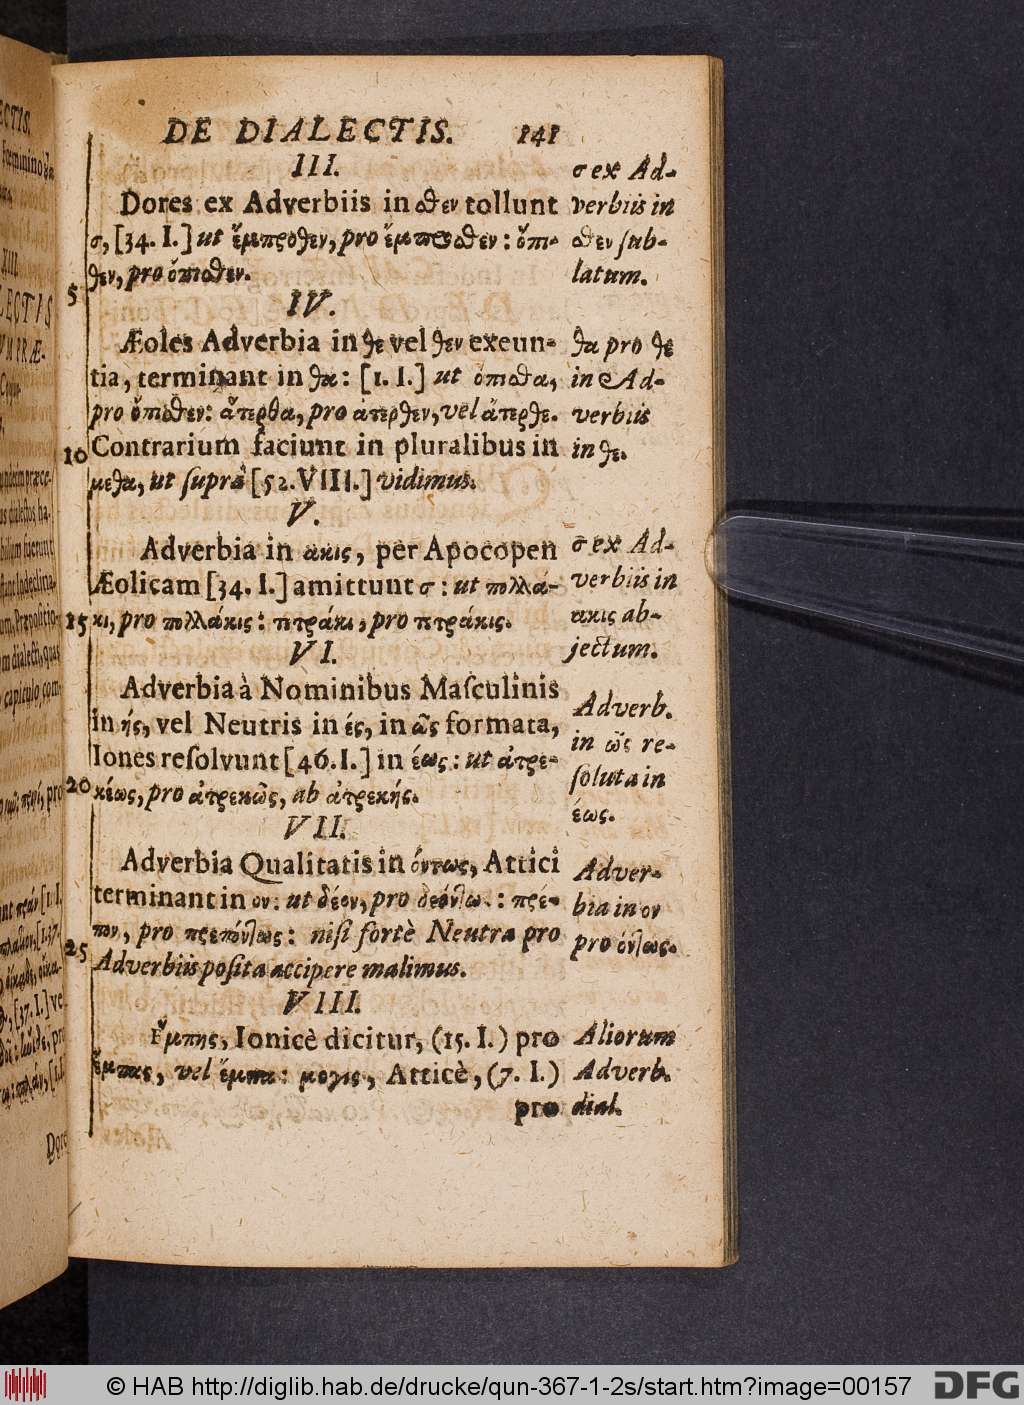 DE DIALECTIS. 141
III.
Dores ex Adverbiis in σθεν tollunt
σ, [34. I.] ut ἔμπροθεν, pro ἔμπροσθεν: ὄπι-
θεν, pro ὄπισθεν.
5
σ ex Ad-
verbiis in
σθεν sub-
latum.
IV.
Æoles Adverbia in θε vel θεν exeun-
tia, terminant in θα: [1. I.] ut ὄπισθα,
pro ὄπισθεν: ἄπερθα, pro ἄπερθεν, vel ἄπερθε.
Contrarium faciunt in pluralibus in
10
μεθα, ut suprà [52. VIII.] vidimus.
θα pro θε
in Ad-
verbiis
in θε.
V.
Adverbia in ακις, per Apocopen
Æolicam [34. I.] amittunt σ: ut πολλά-
κι, pro πολλάκις: τετράκι, pro τετράκις.
15
σ ex Ad-
verbiis in
ακις ab-
jectum.
VI.
Adverbia à Nominibus Maſculinis
in ής, vel Neutris in ές, in ῶς formata,
Iones reſolvunt [46. I.] in έως: ut ἀτρε-
κέως, pro ἀτρεκῶς, ab ἀτρεκής.
20
Adverb.
in ῶς re-
ſoluta in
έως.
VII.
Adverbia Qualitatis in όντως, Attici
terminant in ον: ut δέον, pro δεόντως: πρέ-
πον, pro πρεπόντως: niſi fortè Neutra pro
Adverbiis poſita accipere malimus.
25
Adver-
bia in ον
pro όντως.
VIII.
Ἔμπης, Ionicè dicitur, (15. I.) pro
ἔμπας, vel ἔμπα: μογις, Atticè, (7. I.)
pro
Aliorum
Adverb.
dial.
© HAB http://diglib.hab.de/drucke/qun-367-1-2s/start.htm?image=00157
DFG